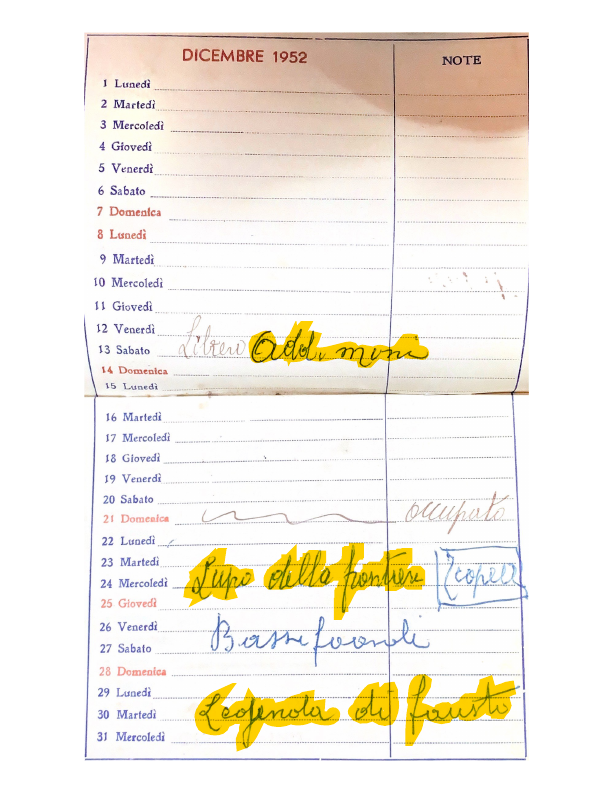 DICEMBRE 1952 NOTE
1 Lunedì
2 Martedì
3 Mercoledì
4 Giovedì
5 Venerdì
6 Sabato
7 Domenica
8 Lunedì
9 Martedì
10 Mercoledì
11 Giovedì
12 Venerdì
13 Sabato Libero
14 Domenica
15 Lunedì
16 Martedì
17 Mercoledì
18 Giovedì
19 Venerdì
20 Sabato
21 Domenica occupato
22 Lunedì
23 Martedì
24 Mercoledì Lupo della frontiera
25 Giovedì
26 Venerdì
27 Sabato Bassifondi
28 Domenica
29 Lunedì
30 Martedì Leggenda di fausto
31 Mercoledì